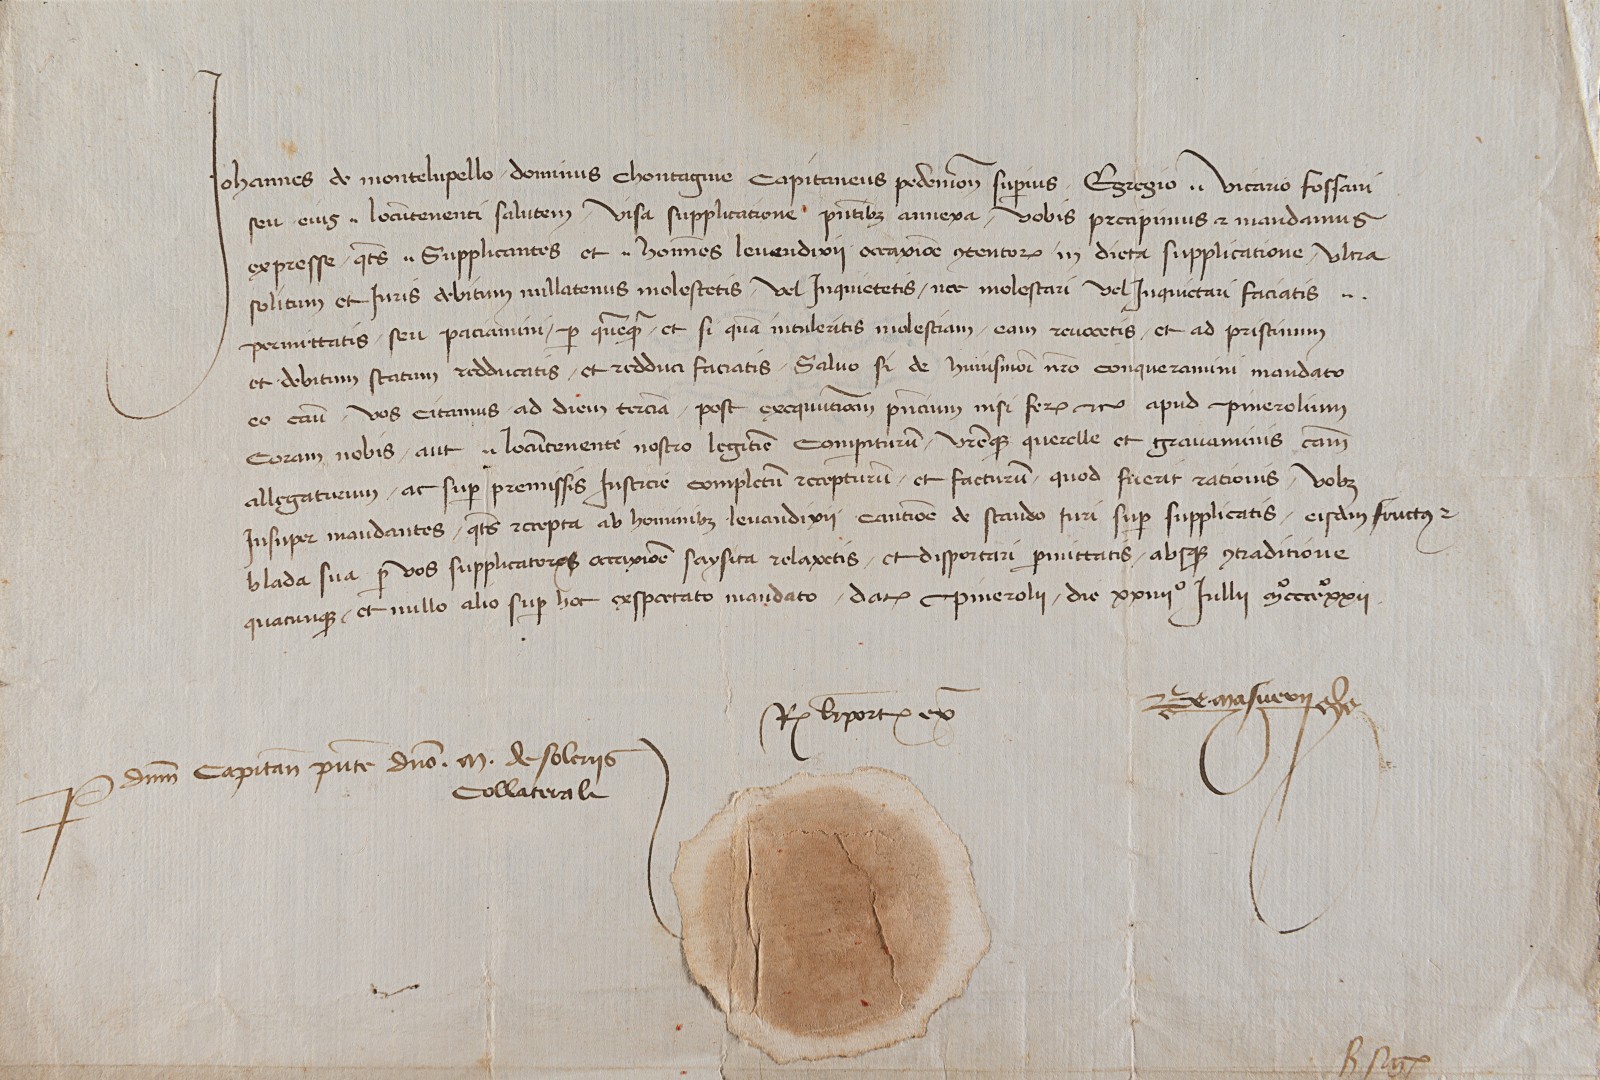 Johannes de montelupello dominus Chontagnie Capitaneus pedemōn sup̄ius Egregio .. vicario fossani
seu eius .. locūtenenti salutem / visa supplicatione pn̄tibꝫ annexa / vobis precipimus ⁊ mandamus
expresse / qt̄s .. Supplicantes et .. hoīnes levendixii occaxiōe ꝯtentorꝝ in dicta supplicatione / ultra
solitum et Juris debitum nullatenus molestetis / vel Inquietetis / nec molestari vel Inquietari faciatis ..
permittatis / seu paciamini / p quēcq̄ / et si quā intuleritis molestiam / eam revocetis / et ad pristinum
et debitum statum redducatis / et redduci faciatis / Salvo si de huiusmōi nr̄o conqueramini mandato
eo cāu / vos Citamus / ad diem tercia / post exequutiōm pn̄cium nisi ferꝝ apud pinerolium
Coram nobis / aut .. locūtenente nostro legitīe Comparturū / vr̄eqꝫ querelle et gravaminis cām
allegaturum / ac sup premissis Justicie complctū recepturū / et facturū / quod fuerit rationis / vobꝫ
Insuper mandantes / qt̄s recepta ab hominibꝫ levandixii Cautiōe de stando Juri sup supplicatis / eisdm fructꝰ ⁊
blada sua p vos supplicatores occaxiōe saysita relaxetis / et disportari p̄mittatis / absqꝫ ꝯtraditione
quacunqꝫ / et nullo alio sup hoc exspectato mandato / datꝝ pinerolii / die xxiiiiº Jullii Mºccccºxxii
Rꝝ lr̄ portꝝ
p dnm̄ Capitan̄ pn̄te dn̄o . M. de soleriis
Collaterale